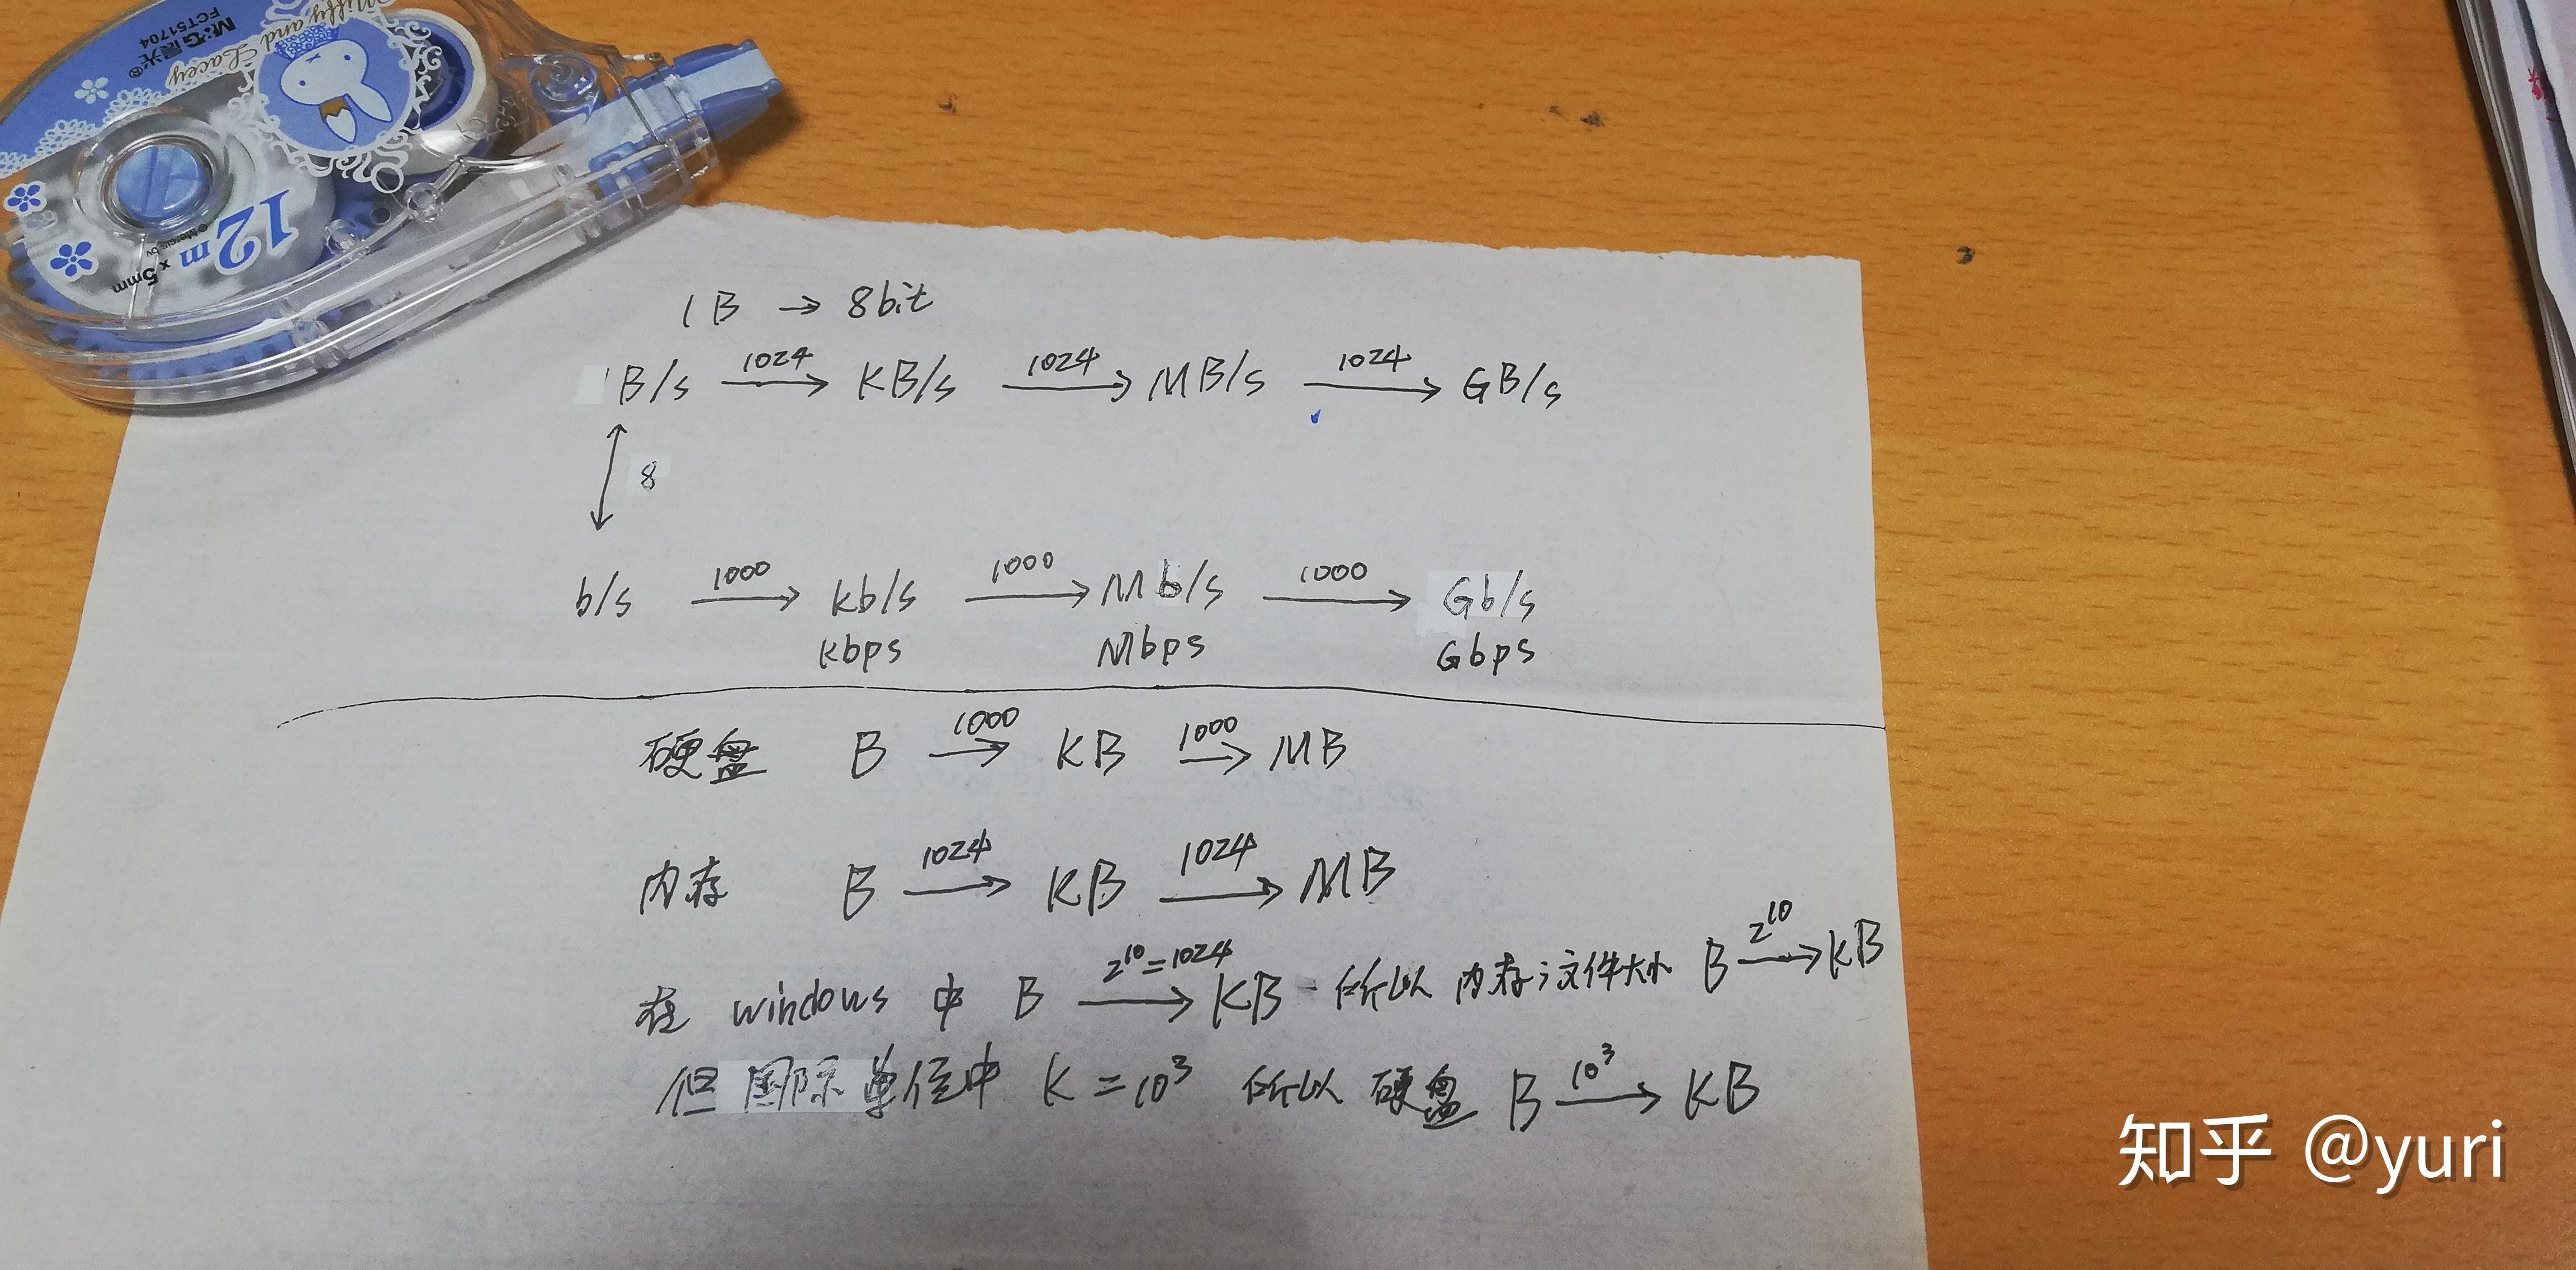 M&G晨光®
FCT51704
Miffy and Lacey
12m x 5mm
© Mercis bv
1B → 8bit
1B/s 1024→ KB/s 1024→ MB/s 1024→ GB/s
8
b/s 1000→ kb/s 1000→ Mb/s 1000→ Gb/s
Kbps Mbps Gbps
硬盘 B 1000→ KB 1000→ MB
内存 B 1024→ KB 1024→ MB
在 windows 中 B 2^10=1024→ KB 所以 内存;文件大小 B 2^10→ KB
但国际单位中 K=10^3 所以 硬盘 B 10^3→ KB
知乎 @yuri